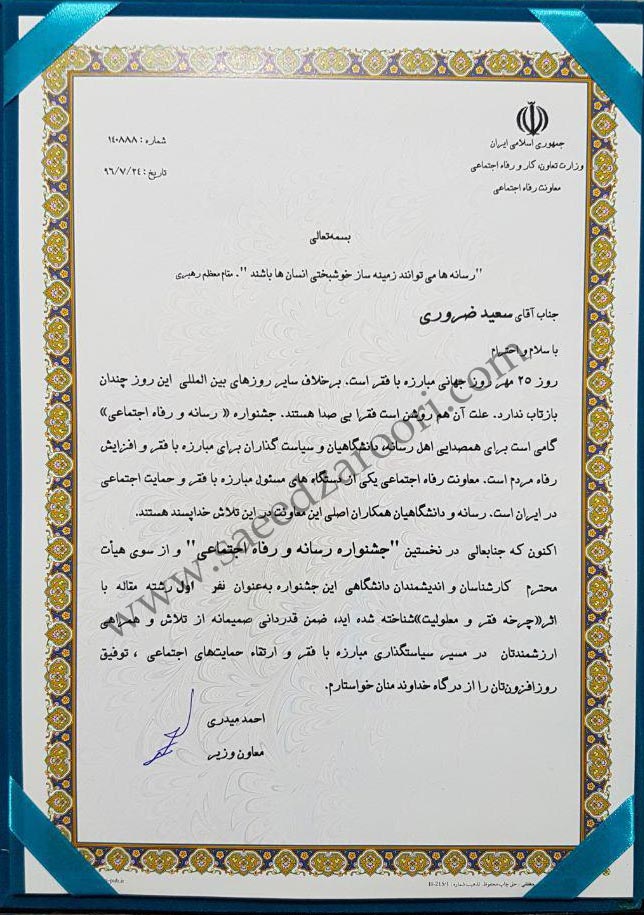 جمهوری اسلامی ایران
وزارت تعاون، کار و رفاه اجتماعی
معاونت رفاه اجتماعی
شماره: ۱۴۰۸۸۸
تاریخ: ۹۶/۷/۲۴
بسمه‌تعالی
"رسانه ها می توانند زمینه ساز خوشبختی انسان ها باشند". مقام معظم رهبری
جناب آقای سعید ضروری
با سلام و احترام
روز ۲۵ مهر روز جهانی مبارزه با فقر است. برخلاف سایر روزهای بین المللی این روز چندان
بازتاب ندارد. علت آن هم روشن است فقرا بی صدا هستند. جشنواره « رسانه و رفاه اجتماعی»
گامی است برای همصدایی اهل رسانه، دانشگاهیان و سیاست گذاران برای مبارزه با فقر و افزایش
رفاه مردم است. معاونت رفاه اجتماعی یکی از دستگاه های مسئول مبارزه با فقر و حمایت اجتماعی
در ایران است. رسانه و دانشگاهیان همکاران اصلی این معاونت در این تلاش خداپسند هستند.
اکنون که جنابعالی در نخستین "جشنواره رسانه و رفاه اجتماعی" و از سوی هیأت
محترم کارشناسان و اندیشمندان دانشگاهی این جشنواره به‌عنوان نفر اول رشته مقاله با
اثر«چرخه فقر و معلولیت»شناخته شده اید، ضمن قدردانی صمیمانه از تلاش و همراهی
ارزشمندتان در مسیر سیاستگذاری مبارزه با فقر و ارتقاء حمایت‌های اجتماعی ، توفیق
روزافزون‌تان را از درگاه خداوند منان خواستارم.
احمد میدری
معاون وزیر
www.saeedzaroori.com
حق چاپ محفوظ. تذهیب شماره: B-215/1